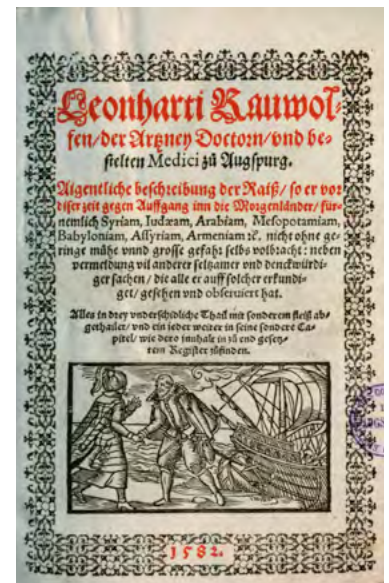 Leonharti Rauwol-
fen/ der Artzney Doctorn/ vnd be-
stelten Medici zů Augspurg.
Aigentliche beschreibung der Raiß/ so er vor
diser zeit gegen Auffgang inn die Morgenländer/ für-
nemlich Syriam, Iudæam, Arabiam, Mesopotamiam,
Babyloniam, Assyriam, Armeniam ꝛc. nicht ohne ge-
ringe mühe vnnd grosse gefahr selbs volbracht: neben
vermeldung vil anderer seltzamer vnd denckwürdi-
ger sachen/ die alle er auff solcher erkundi-
get/ gesehen vnd obseruiert hat.
Alles in drey vnderschidliche Thail mit sonderem fleiß ab-
gethailet/ vnd ein jeder weiter in seine sondere Ca-
pitel/ wie dero innhalt in zů end gesetz-
tem Register zůfinden.
1582.